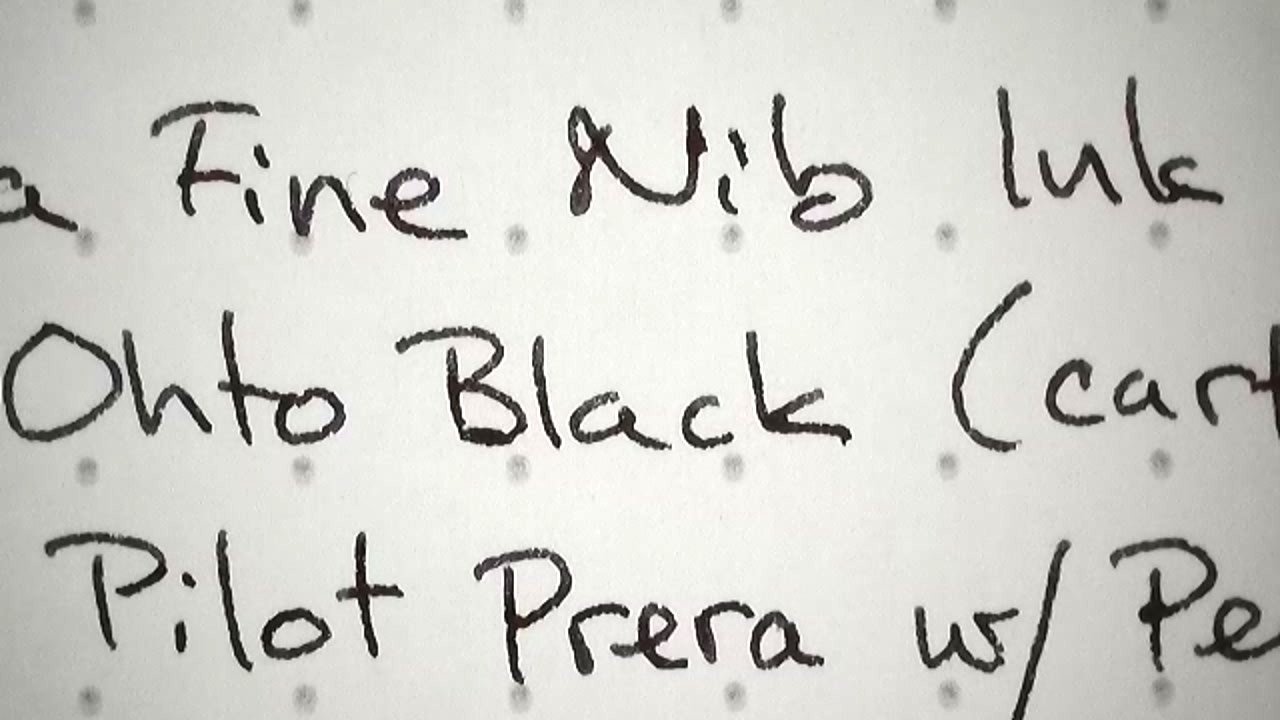 a Fine Nib Ink
Ohto Black (cart
Pilot Prera w/ Pe